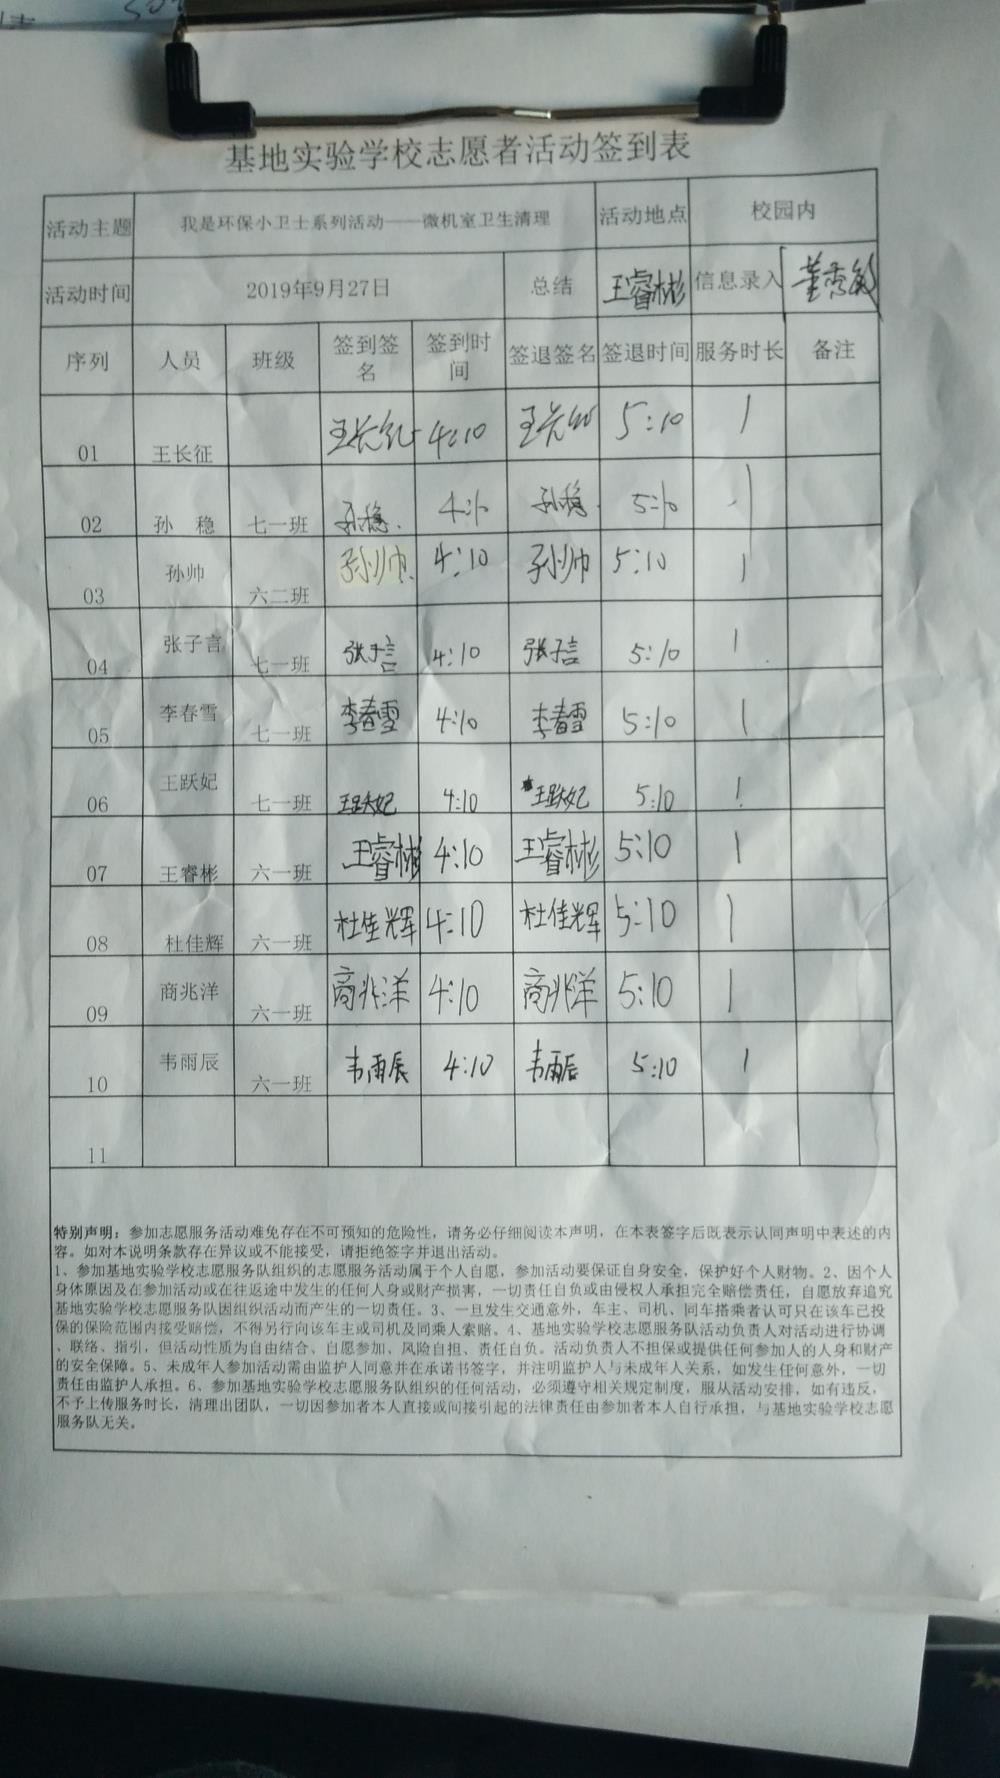 基地实验学校志愿者活动签到表
活动主题 我是环保小卫士系列活动——微机室卫生清理 活动地点 校园内
活动时间 2019年9月27日 总结 王睿彬 信息录入 董秀敏
序列 人员 班级 签到签名 签到时间 签退签名 签退时间 服务时长 备注
01 王长征 王长征 4:10 王长征 5:10 1
02 孙 稳 七一班 孙稳 4:10 孙稳 5:10 1
03 孙帅 六二班 孙帅 4:10 孙帅 5:10 1
04 张子言 七一班 张子言 4:10 张子言 5:10 1
05 李春雪 七一班 李春雪 4:10 李春雪 5:10 1
06 王跃妃 七一班 王跃妃 4:10 王跃妃 5:10 1
07 王睿彬 六一班 王睿彬 4:10 王睿彬 5:10 1
08 杜佳辉 六一班 杜佳辉 4:10 杜佳辉 5:10 1
09 商兆洋 六一班 商兆洋 4:10 商兆洋 5:10 1
10 韦雨辰 六一班 韦雨辰 4:10 韦雨辰 5:10 1
11
特别声明：参加志愿服务活动难免存在不可预知的危险性，请务必仔细阅读本声明，在本表签字后既表示认同声明中表述的内
容。如对本说明条款存在异议或不能接受，请拒绝签字并退出活动。
1、参加基地实验学校志愿服务队组织的志愿服务活动属于个人自愿，参加活动要保证自身安全，保护好个人财物。2、因个人
身体原因及在参加活动或在往返途中发生的任何人身或财产损害，一切责任自负或由侵权人承担完全赔偿责任，自愿放弃追究
基地实验学校志愿服务队因组织活动而产生的一切责任。3、一旦发生交通意外，车主、司机、同车搭乘者认可只在该车已投
保的保险范围内接受赔偿，不得另行向该车主或司机及同乘人索赔。4、基地实验学校志愿服务队活动负责人对活动进行协调
、联络、指引，但活动性质为自由结合、自愿参加、风险自担、责任自负。活动负责人不担保或提供任何参加人的人身和财产
的安全保障。5、未成年人参加活动需由监护人同意并在承诺书签字，并注明监护人与未成年人关系，如发生任何意外，一切
责任由监护人承担。6、参加基地实验学校志愿服务队组织的任何活动，必须遵守相关规定制度，服从活动安排，如有违反，
不予上传服务时长，清理出团队，一切因参加者本人直接或间接引起的法律责任由参加者本人自行承担，与基地实验学校志愿
服务队无关。